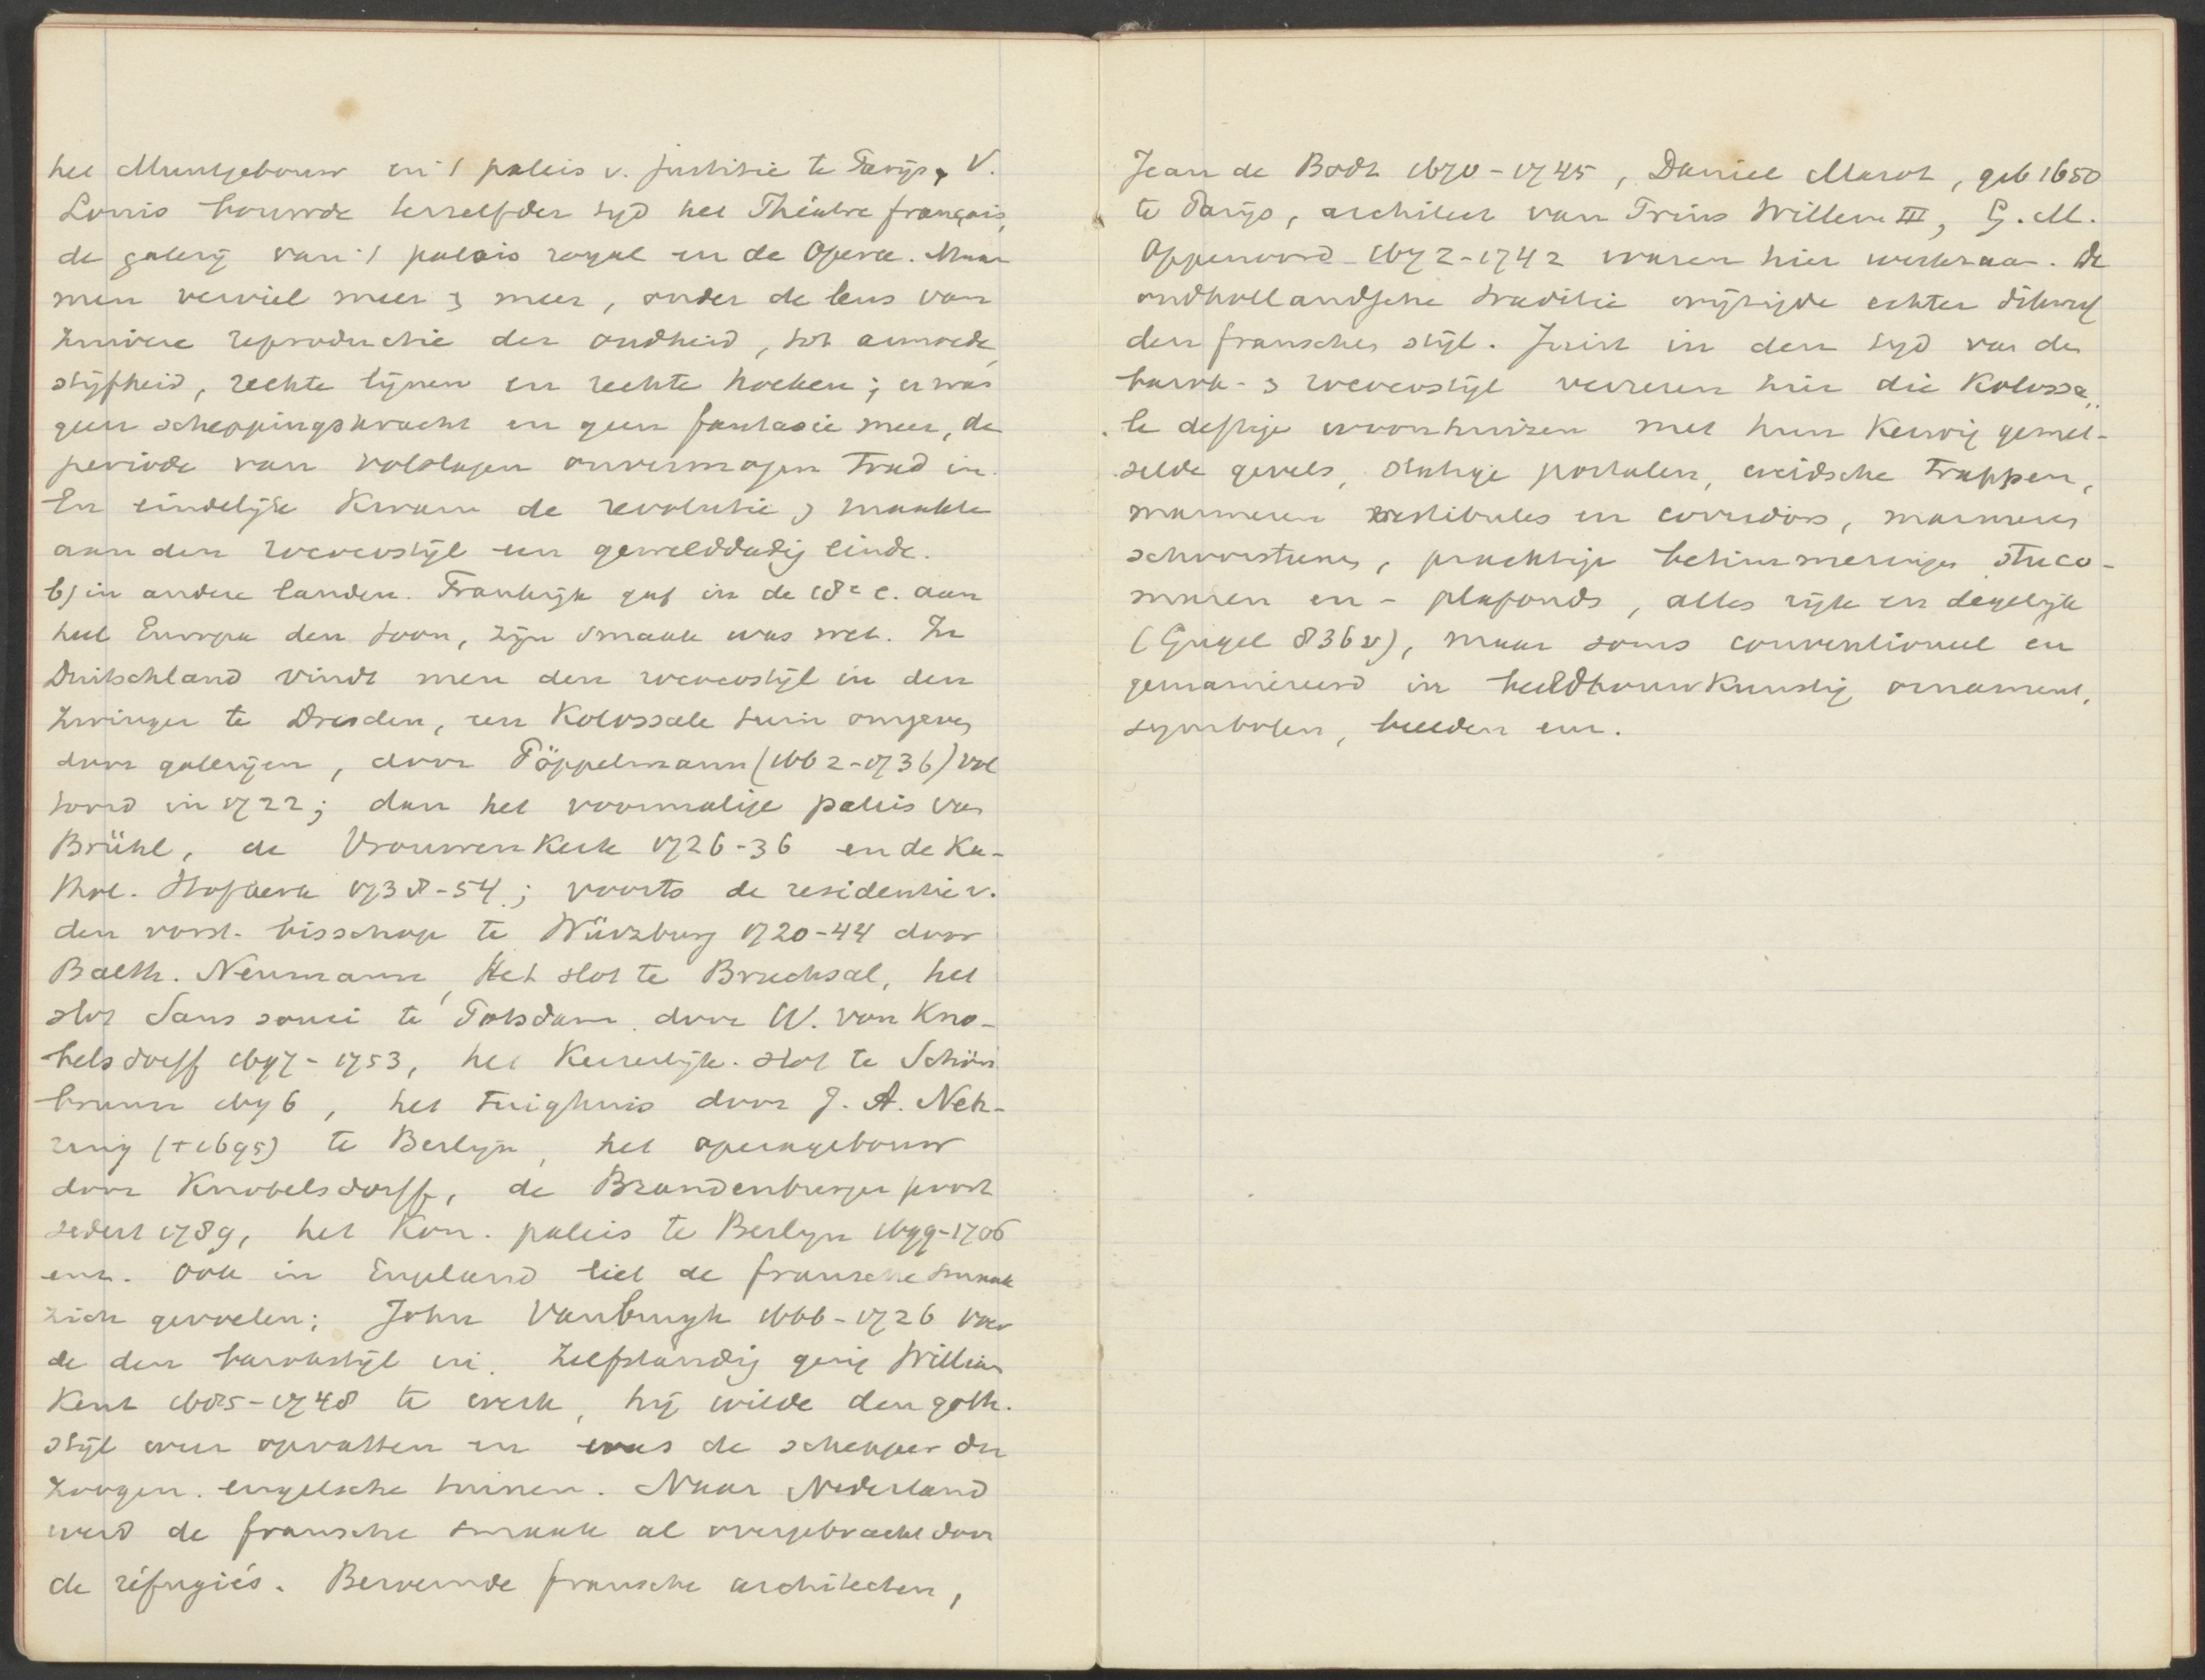 het Muntgebouw en 't paleis v. justitie te Parijs, V.
Louis bouwde terzelfder tyd het Théatre français,
de galerij van 't palais royal en de Opera. Maar
men verviel meer & meer, onder de leus van
zuivere reproductie der oudheid, tot armoede,
stijfheid, rechte lijnen en rechte hoeken; er was
geen scheppingskracht en geen fantasie meer, de
periode van volslagen onvermogen trad in.
En eindelijk kwam de revolutie & maakte
aan den rococostijl een gewelddadig einde.
b) in andere landen. Frankrijk gaf in de 18e e. aan
heel Europa den toon, zijn smaak was wet. In
Duitschland vindt men den rococostijl in den
Zwinger te Dresden, een kolossale tuin omgeven
door galerijen, door Pöppelmann (1662-1736) vol
tooid in 1722; dan het voormalige paleis van
Brühl, de Vrouwenkerk 1726-36 en de Ka-
thol. Hofkerk 1738-54; voorts de residentie v.
den vorst-bisschop te Würzburg 1720-44 door
Balth. Neumann, Het slot te Bruchsal, het
slot Sans souci te Potsdam door W. von Kno-
belsdorff 1697-1753, het Keizerlijk slot te Schön
brunn 1696, het Tuighuis door J. A. Neh-
ring (+1695) te Berlijn, het operagebouw
door Knobelsdorff, de Brandenburger poort
sedert 1789, het Kon. paleis te Berlyn 1699-1706
enz. Ook in Engeland liet de fransche smaak
zich gevoelen; John Vanbrugh 1666-1726 voer
de den barokstijl in. Zelfstandig ging William
Kent 1685-1748 te werk, hij wilde den goth.
stijl weer opvatten en was de schepper der
zoogen. engelsche tuinen. Naar Nederland
werd de fransche smaak al overgebracht door
de réfugiés. Beroemde fransche architecten,
Jean de Bodt 1670-1745, Daniel Marot, geb 1650
te Parijs, architect van Prins Willem III, G. M.
Oppenoord 1672-1742 waren hier werkzaam. De
oudhollandsche traditie wijzigde echter dikwijls
den franschen stijl. Juist in den tyd van de
barok- & rococostijl verrezen hier die kolossa„
le deftige woonhuizen met hun keurig gemet-
selde gevels, statige portalen, eveidsche trappen,
marmeren vestibules en corridors, marmeren
schoorsteenen, prachtige betimmeringen stuco-
muren en - plafonds, alles rijk en degelijk
(Gugel 836v), maar soms conventioneel en
gemaniëreerd in beeldhouwkunstig ornament,
symbolen, beelden enz.